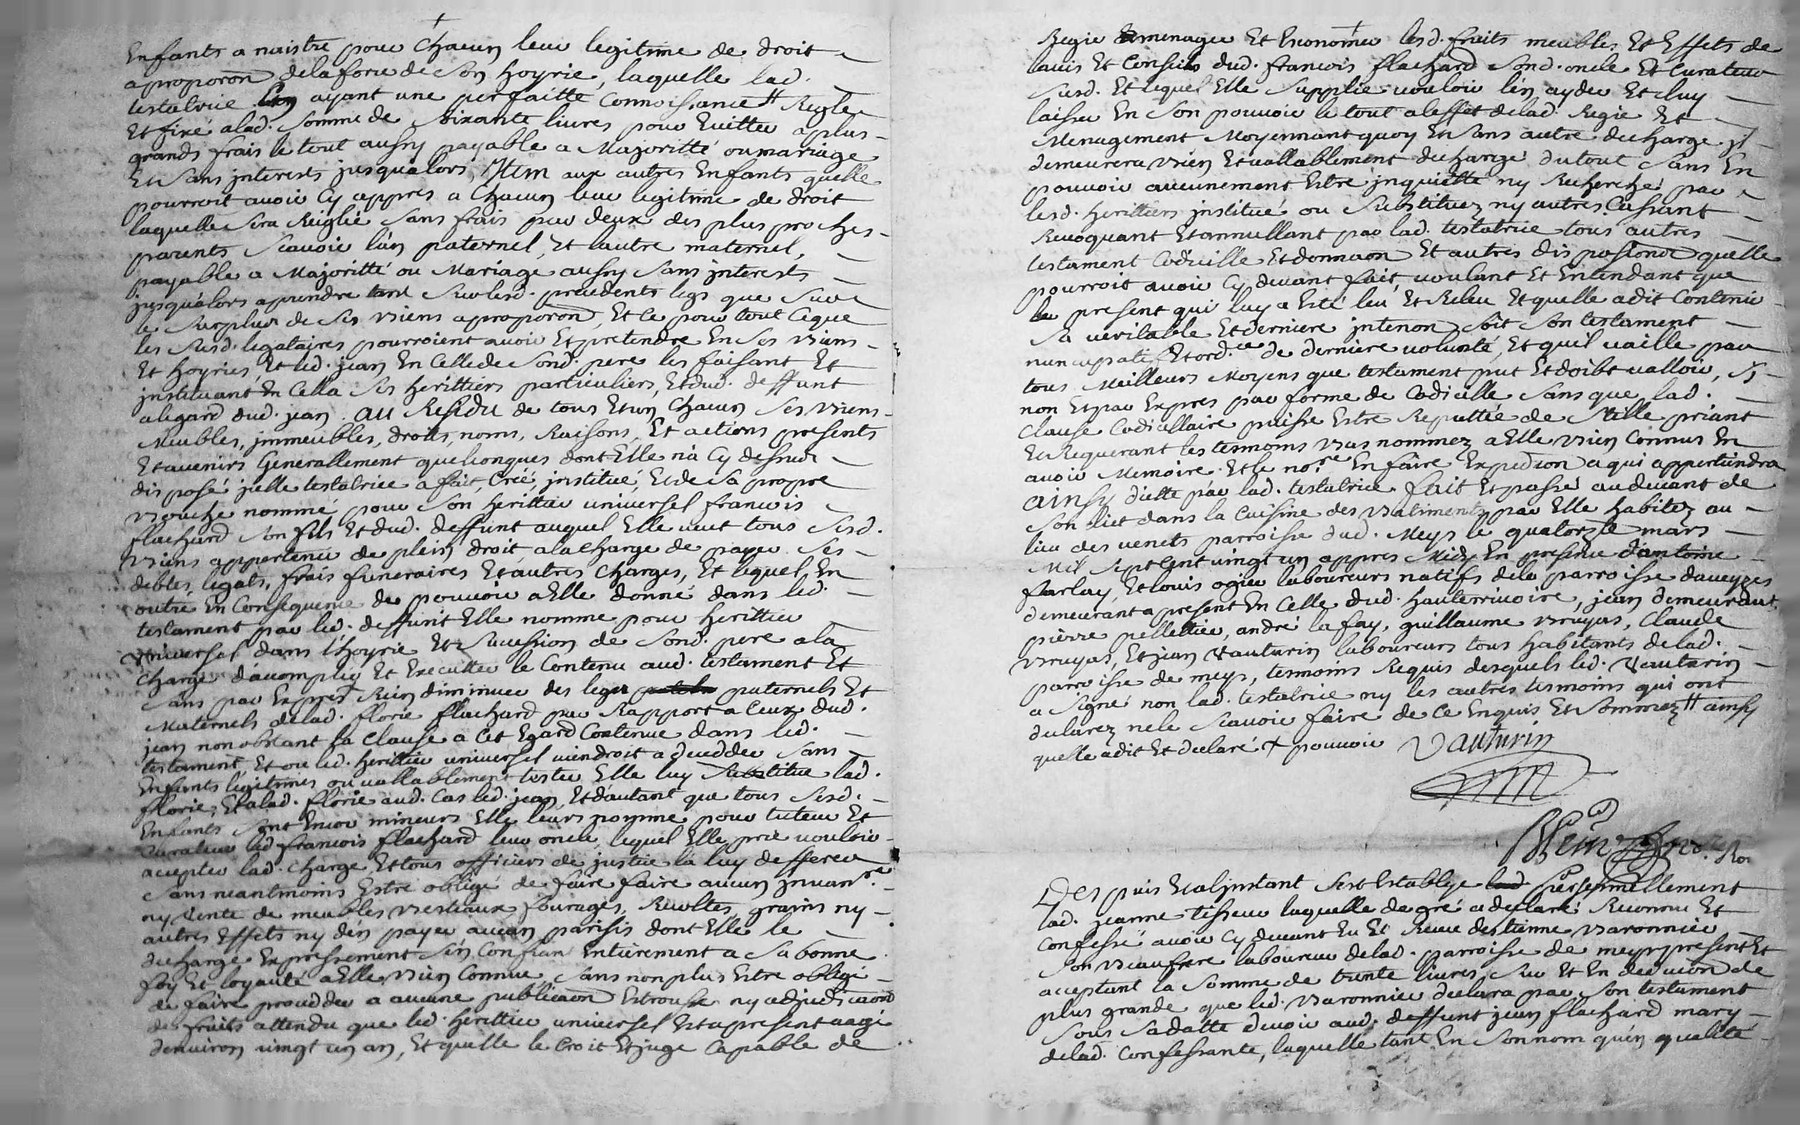 Enfants a naistre pour Chacun leur legitime de droit
a proporon de la force de son hoyrie, laquelle lad.
testatrice ayant une perfaitte Connoissance Regle
Et fixé a lad. Somme de Soixante livres pour Eviter a plus
grands frais le tout aussy payable a Majoritté ou mariage
Et Sans jnterests jusqualors, Jtem aux autres Enfants quelle
pourroit avoir Cy appres a Chacun leur legitime de droit
laquelle Sera Reiglée Sans frais par deux des plus proches
parents Scavoir lún paternel, Et lautre maternel,
payables a Majoritté ou Mariage aussy Sans jnterests
jusqualors a prendre tant Sur lesd. precedents legs que Sur
le Surplus de Ses Biens a proporon, Et Ce pour tout Ceque
les Susd. legataires pourroient avoir Et pretendre En Ses Biens
Et hoyries Et led. jean En Celle de Sond. pere les faisant Et
jnstituant En Cella Ses herittiers particuliers, Et dud. deffunt
alegard dud. jean. AU Residu de tous Et un Chacun Ses Biens
Meubles, jmmeubles, droits, noms, Raisons, Et actions presents
Et avenirs Generallement quelconques dont Elle n'a Cy dessus
disposé jcelle testatrice a fait, Créé, jnstitué, Et de Sa propre
Bouche nommé pour Son herittier universel francois
flachard Son fils Et dud. deffunt auquel Elle veut tous Sesd.
Biens appartenir de plein droit a la charge de payer Ses
debtes, legats, frais funeraires Et autres Charges, Et lequel En
outre En Consequence du pouvoir a Elle donné dans led.
testament par led. deffunt Elle nomme pour herittier
Universel dans l'hoyrie Et Succession de Sond. pere a la
Charge d'acomplir Et Executter le Contenu aud. testament Et
Sans par Exprés Rien diminuer des legs paternels Et
Maternels de lad. florie flachard par Rapport a Ceux dud.
jean nonobstant la Clause a Cet Egard Contenue dans led.
testament, Et ou led. herittier universel viendroit a decedder Sans
Enfants legitimes ou vallablement tester Elle luy Substitue lad.
florie, Et a lad. florie aud. Cas led. jean, Et d'autant que tous Sesd.
Enfants Sont Encor mineurs Elle leurs nomme pour tuteur Et
Curateur led. francois flachard leur oncle, lequel Elle prie vouloir
accepter lad. charge, Et tous officiers de justice la luy defferer
Sans neantmoins Estre obligé de faire faire aucun jnvanre.
ny Vente de meubles, Bestiaux, fourages, Recoltes, grains ny
autres Effets ny d'en payer aucun parisis dont Elle le
decharge Expressement S'en Confian Entierement a Sa bonne
foy Et loyauté a Elle Bien Connue, Sans non plus Estre obligé
de faire procedder a aucune publicaon Estrousse ny adjudicaon
des fruits attendu que led. herittier universel Est a present aagé
d'environ vingt un an, Et quelle le Croit Et juge Capable de
Regir menager Et Economer lesd. fruits meubles Et Effets de
lavis Et Conseils dud. francois flachard Sond. oncle Et Curateur
Susd. Et lequel Elle Supplie vouloir l'en ayder Et luy
laisser En Son pouvoir le tout a leffet de lad. Regie Et
Menagement Moyennant quoy En Sans autre decharge jl
demeurera Bien Et vallablement decharge du tout Sans En
pouvoir aucunement Estre jnquiette ny Recherché par
lesd. herittiers jnstitué ou Substituez ny autres, Cassant
Revoquant Et annullant par lad. testatrice tous autres
testament Codicille Et donnaon Et autres disposions quelle
pourroit avoir Cy devant fait, voulant Et Entendant que
le present qui luy a Esté leu Et Releu Et quelle a dit Contenir
Sa veritable Et derniere jntenon Soit Son testament
nuncupatif, Et ord.ce de derniere volonté, Et quil vaille par
tous Meilleurs Moyens que testament peut Et doibt valloir, Si
non Et par Expres par forme de Codicille Sans que lad.
Clause Codicillaire puisse Estre Reputtée de Stille priant
Et Requerant les tesmoins Bas nommez a Elle Bien Connus En
avoir Memoire. Et le nore. En faire Expedion a qui appartiendra
AINSy dicté par lad. testatrice. Fait Et passé au devant de
Son lict dans la Cuisine des Batiments par Elle habitez au
lieu des venets parroisse dud. Meys le quatorze mars
Mil Sept Cent vingt un appres Midy En presence d'antoine
farlay, Et louis ogier laboureurs natifs de la parroisse daveyzes
demeurant a present En Celle dud. hauterrivoire, jean demeurant,
pierre pelletier, andré la fay, guillaume Bruyas, Claude
Bruyas, Et jean Vauturin laboureurs tous habitants de lad.
parroisse de meys, tesmoins Requis desquels led. Vauturin
a Signé non lad. testatrice ny les autres tesmoins qui ont
declarez ne le Scavoir faire de Ce Enquis Et Sommez ainsy
quelle a dit Et declaré pouvoir Vauturin
Des puis Et a l'jnstant Sest Establye personnellement
lad. jeanne tisseur laquelle de gré a declaré Reconnu Et
Confessé avoir Cy devant Eu Et Receu destienne Baronnier
Son Beaufrere laboureur de lad. parroisse de meys present Et
aceptant la Somme de trente livres, Sur Et En deducion de
plus grande que led. Baronnier declara par Son testament
Sous Sa datte devoir aud. deffunt jean flachard mary
de lad. Confessante, laquelle tant En Son nom qu'en qualité